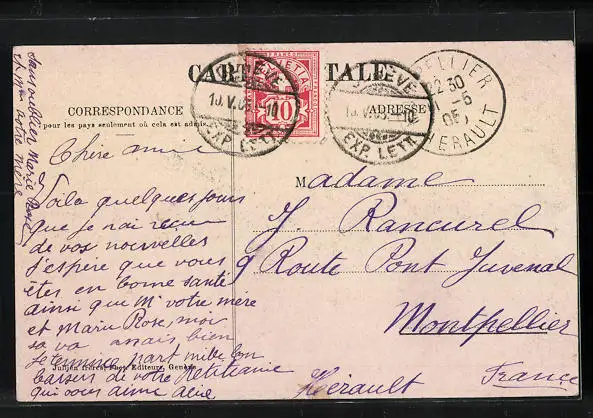 CARTE POSTALE
HELVETIA
FRANCO
10
GENÈVE
10.V.05.-10
EXP. LETT.
GENÈVE
10.V.05.-10
EXP. LETT.
MONTPELLIER
22 30
-5
05
HERAULT
CORRESPONDANCE
pour les pays seulement où cela est admis
ADRESSE
Chère amie
Voilà quelques jours
que je n'ai recu
de vos nouvelles
J'espire que vous
êtes en bonne santé
ainsi que Mr votre mère
et Marie Rose, moi
sa va assais bien
Je termine part mille bon
baisers de votre
qui vous aime
Jullien frères, Phot. Editeurs, Genève
Marie Rose
et Mme votre mère
Madame
J. Rancurel
9 Route Pont Juvenal
Montpellier
Hérault France